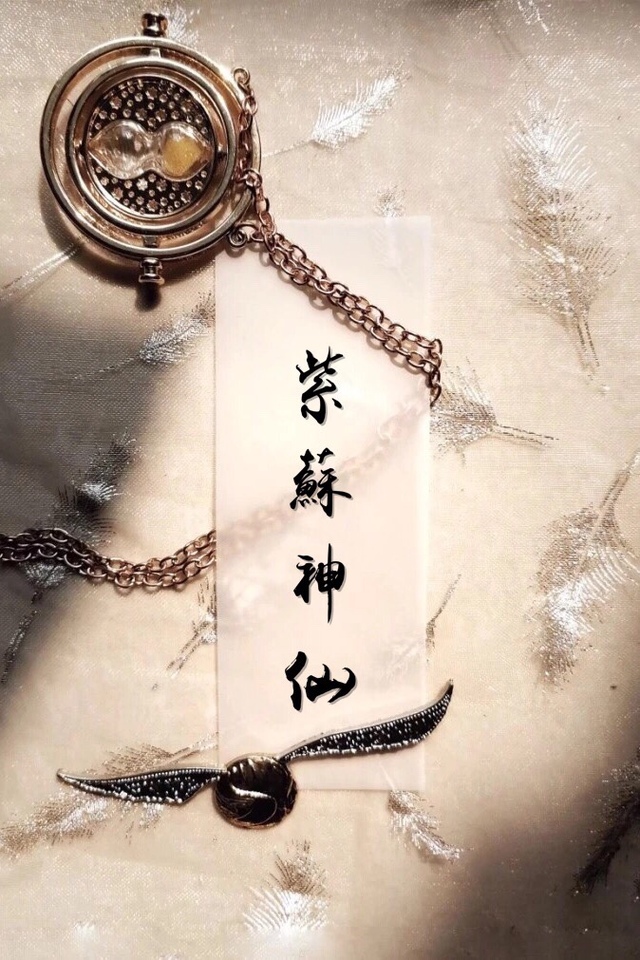 紫蘇神仙